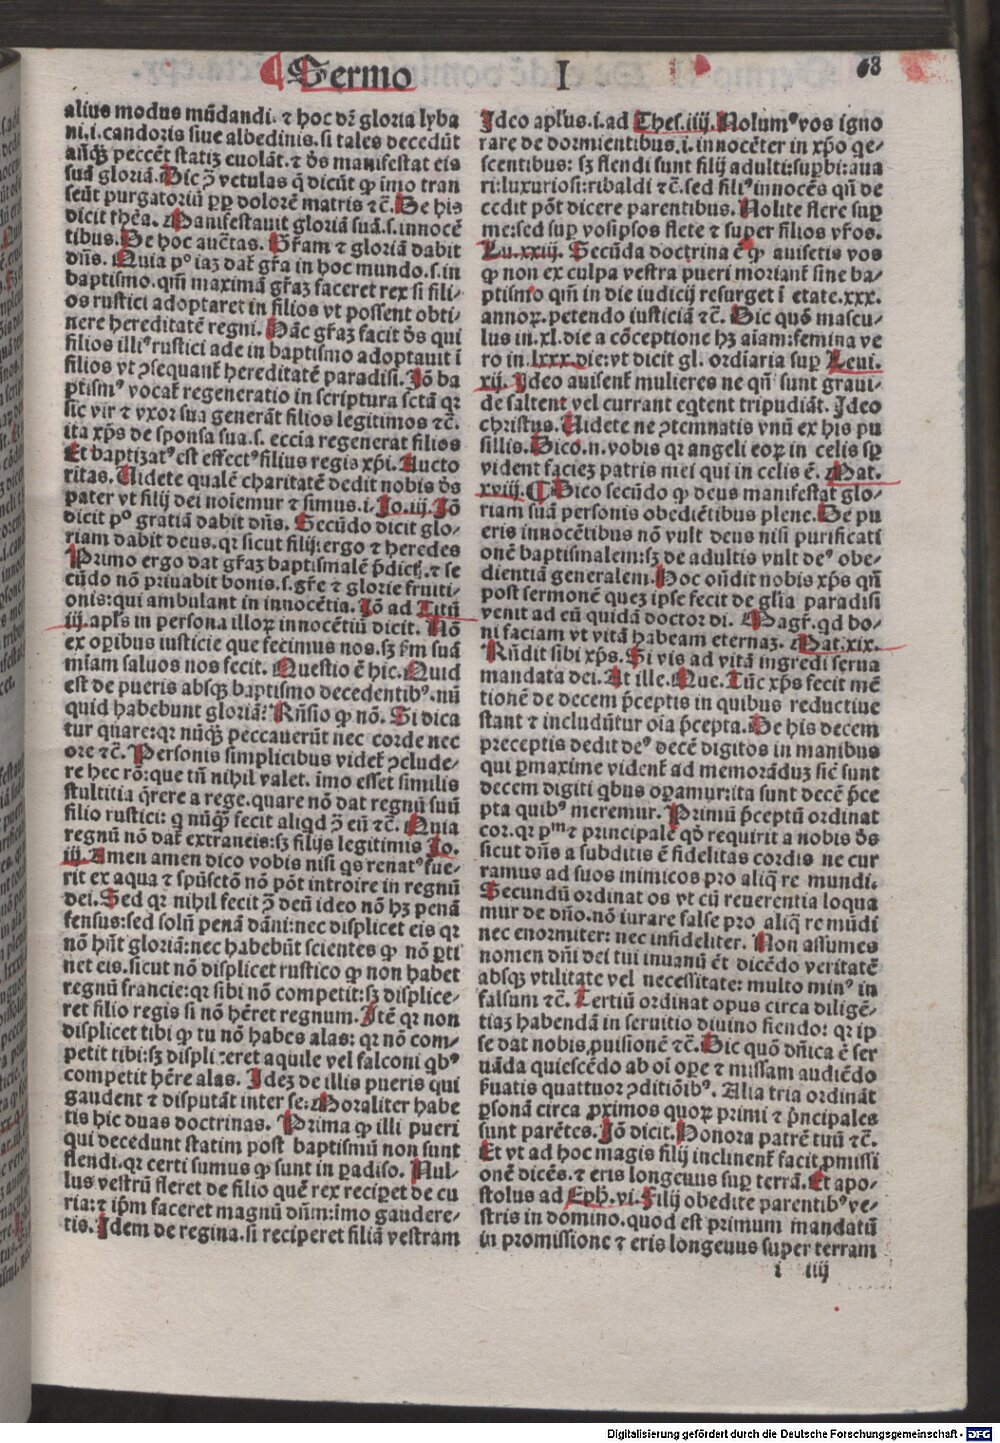 Sermo I 68
alius modus mūdandi. ⁊ hoc dr̄ gloria lyba
ni.i.candoris siue albedinis.si tales decedūt
anq̄ꝫ peccēt statiꝫ euolāt.⁊ dn̄s manifestat eis
suā gloriā.Hic ꝯ̄ vetulas q̄ dicūt ꝙ imo tran
seūt purgatoriū ꝓpꝑ dolorē matris ⁊c̄.De his
dicit thēa. Manifestauit gloriā suā.s.innocē
tibus.De hoc auc̄tas. Gr̄am ⁊ gloriā dabit
dn̄s. Quia pº iaꝫ dat̄ gr̄a in hoc mundo.s.in
baptismo.qm̄ maximā gr̄aꝫ faceret rex si fili/
os rustici adoptaret in filios vt possent obti/
nere hereditatē regni. Hāc gr̄aꝫ facit dn̄s qui
filios illiꝰ rustici ade in baptismo adoptauit ī
filios vt ꝯsequant̄ hereditatē paradisi.Iō ba
ptismꝰ vocat̄ regeneratio in scriptura sctā qꝛ
sic vir ⁊ vxor sua generāt filios legitimos ⁊c̄.
ita xp̄s de sponsa sua.s.eccia regenerat filios
Et baptizatꝰ est effectꝰ filius regis xp̄i. Aucto
ritas. Uidete qualē charitatē dedit nobis dn̄s
pater vt filij dei noīemur ⁊ simus.i.Io.iij.Iō
dicit pº gratiā dabit dn̄s. Secūdo dicit glo/
riam dabit deus.qꝛ sicut filij:ergo ⁊ heredes
Primo ergo dat gr̄aꝫ baptismalē p̄dictꝫ.⁊ se
cūdo nō priuabit bonis.s.gr̄e ⁊ glorie fruiti/
onis:qui ambulant in innocētia. Iō ad Titū
iij.apl̄s in persona illoꝝ innocētiū dicit. Nō
ex oꝑibus iusticie que fecimus nos.sꝫ fm̄ suā
mīam saluos nos fecit. Questio ē hic.Quid
est de pueris absqꝫ baptismo decedentibꝰ.nū
quid habebunt gloriā? Rn̄sio ꝙ nō. Si dica
tur quare:qꝛ nūqꝫ peccauerūt nec corde nec
ore ⁊c̄. Personis simplicibus videt̄ ꝯclude/
re hec rō:que tn̄ nihil valet. imo esset similis
stultitia q̄rere a rege.quare nō dat regnū suū
filio rustici: q nūqꝫ fecit aliqd ꝯ̄ eū ⁊c̄. Quia
regnū nō dat̄ extraneis:sꝫ filijs legitimis Io.
iij.Amen amen dico vobis nisi qs renatꝰ fue/
rit ex aqua ⁊ spūsctō nō pōt introire in regnū
dei.Sed qꝛ nihil fecit ꝯ̄ deū ideo nō hꝫ penā
sensus:sed solū penā dāni:nec displicet eis qꝛ
nō hn̄t gloriā:nec habebūt scientes ꝙ nō ꝑti
net eis.sicut nō displicet rustico ꝙ non habet
regnū francie:qꝛ sibi nō competit:sꝫ displice/
ret filio regis si nō hēret regnum.Itē qꝛ non
displicet tibi ꝙ tu nō habes alas: qꝛ nō com/
petit tibi:sꝫ displiceret aquile vel falconi qbꝰ
competit hēre alas. Ideꝫ de illis pueris qui
gaudent ⁊ disputāt inter se:Moraliter habe
tis hic duas doctrinas. Prima ꝙ illi pueri
qui decedunt statim post baptismū non sunt
flendi.qꝛ certi sumus ꝙ sunt in ꝑadiso. Nul/
lus vestrū fleret de filio quē rex reciꝑet de cu
ria:⁊ ip̄m faceret magnū dn̄m:imo gaudere/
tis.Idem de regina.si reciperet filiā vestram
Ideo apl̄us.i.ad Thes.iiij.Nolumꝰ vos igno
rare de dormientibus.i.innocēter in xp̄o qe/
scentibus: sꝫ flendi sunt filij adulti:suꝑbi:aua
ri:luxuriosi:ribaldi ⁊c̄.sed filiꝰ innocēs qn̄ de
cedit pōt dicere parentibus. Nolite flere suꝑ
me:sed suꝑ vosip̄sos flete ⁊ super filios vr̄os.
Lu.xxiij. Secūda doctrina ē ꝙ auisetis vos
ꝙ non ex culpa vestra pueri moriant̄ sine ba/
ptismo qm̄ in die iudicij resurget ī etate.xxx.
annoꝝ.petendo iusticiā ⁊c̄. Sic quō mascu/
lus in.xl.die a cōceptione hꝫ aīam:femina ve
ro in.lxxx.die:vt dicit gl. ordīaria suꝑ Leui.
xij. Ideo auisent̄ mulieres ne qn̄ sunt graui/
de saltent vel currant eqtent tripudiāt. Ideo
christus.Uidete ne ꝯtemnatis vnū ex his pu
sillis.Dico.n.vobis qꝛ angeli eoꝝ in celis sꝑ
vident facieꝫ patris mei qui in celis ē. Mat.
xviij.¶ Dico secūdo ꝙ deus manifestat glo/
riam suā personis obediētibus plene.De pu
eris innocētibus nō vult deus nisi purificati
onē baptismalem:sꝫ de adultis vult deꝰ obe/
dientiā generalem.Hoc on̄dit nobis xp̄s qn̄
post sermonē queꝫ ipse fecit de gl̄ia paradisi
venit ad eū quidā doctor di. Magr̄.qd bo/
ni faciam vt vitā habeam eternaꝫ. Mat.xix.
Rn̄dit sibi xp̄s.Si vis ad vitā ingredi serua
mandata dei.At ille.Que.Tūc xp̄s fecit mē
tionē de decem p̄ceptis in quibus reductiue
stant ⁊ includūtur oīa p̄cepta.De his decem
preceptis dedit deꝰ decē digitos in manibus
qui ꝑmaxime vident̄ ad memorāduꝫ sic̄ sunt
decem digiti qbus oꝑamur:ita sunt decē p̄ce
pta quibꝰ meremur. Primū p̄ceptū ordinat
cor.qꝛ pᵐ ⁊ principale qd̄ requirit a nobis dn̄s
sicut dn̄s a subditis ē fidelitas cordis ne cur
ramus ad suos inimicos pro aliq̄ re mundi.
Secundū ordinat os vt cū reuerentia loqua
mur de dn̄o.nō iurare false pro aliq̄ re mūdi
nec enormiter: nec infideliter. Non assumes
nomen dn̄i dei tui inuanū ēt dicēdo veritatē
absqꝫ vtilitate vel necessitate: multo minꝰ in
falsum ⁊c̄. Tertiū ordinat opus circa diligē/
tiaꝫ habendā in seruitio diuino fiendo: qꝛ ip
se dat nobis ꝓuisionē ⁊c̄.Sic quō dn̄ica ē ser
uāda quiescēdo ab oī oꝑe ⁊ missam audiēdo
p̄uatis quattuor ꝯditiōibꝰ. Alia tria ordināt
ꝑsonā circa ꝓximos quoꝝ primi ⁊ p̄ncipales
sunt parētes. Iō dicit.Honora patrē tuū ⁊c̄.
Et vt ad hoc magis filij inclinent̄ facit ꝓmissi
onē dicēs.⁊ eris longeuus suꝑ terrā.Et apo/
stolus ad Eph.vi.Filij obedite parentibꝰ ve/
stris in domino.quod est primum mandatū
in promissione ⁊ eris longeuus super terram
i iiij
Digitalisierung gefördert durch die Deutsche Forschungsgemeinschaft - DFG